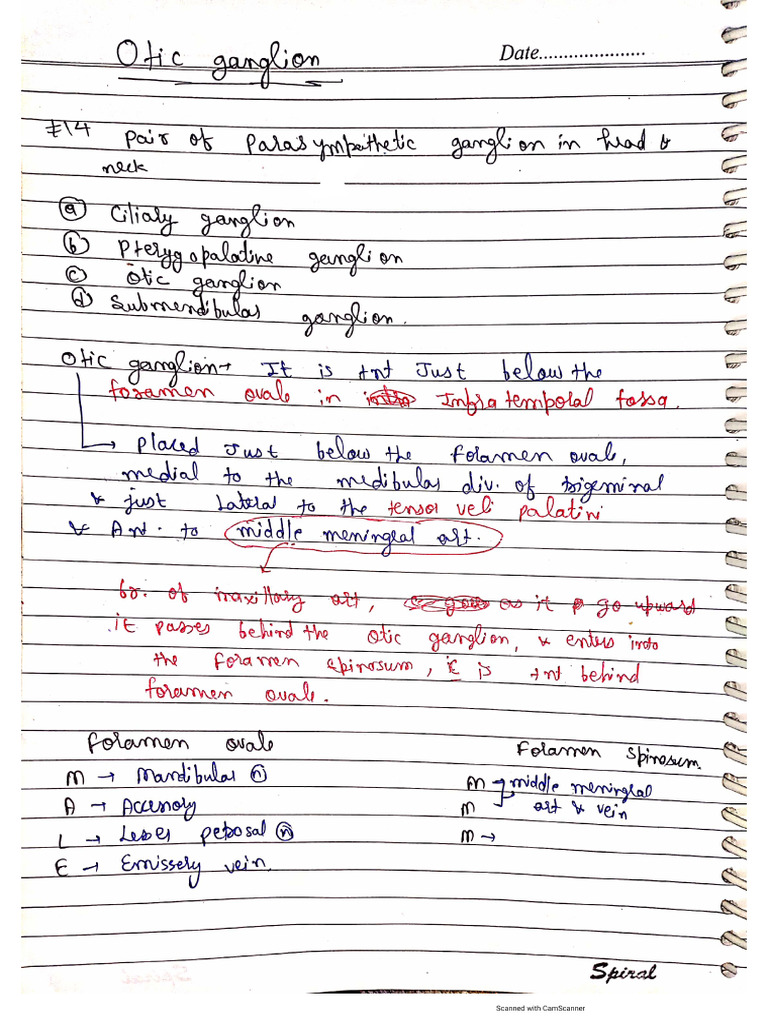 Otic ganglion
Date.....................
#14 pair of Parasympathetic ganglion in head &
neck
(a) Ciliary ganglion
(b) Pterygopalatine ganglion
(c) Otic ganglion
(d) Submendibular ganglion.
Otic ganglion → It is +nt Just below the
foramen ovale in Infra temporal fossa.
→ placed Just below the foramen ovale,
medial to the medibular div. of trigeminal
& just Lateral to the tensor veli palatini
& Ant. to middle meningeal art.
br. of maxillary art, as it go upward
it passes behind the otic ganglion, & enters into
the foramen spinosum, it is +nt behind
foramen ovale.
Foramen ovale
Foramen Spinosum.
M → Mandibular (n)
M → middle meningeal
A → Accessory
M art & vein
L → Lesser petrosal (n)
M →
E → Emissery vein.
Spiral
Scanned with CamScanner